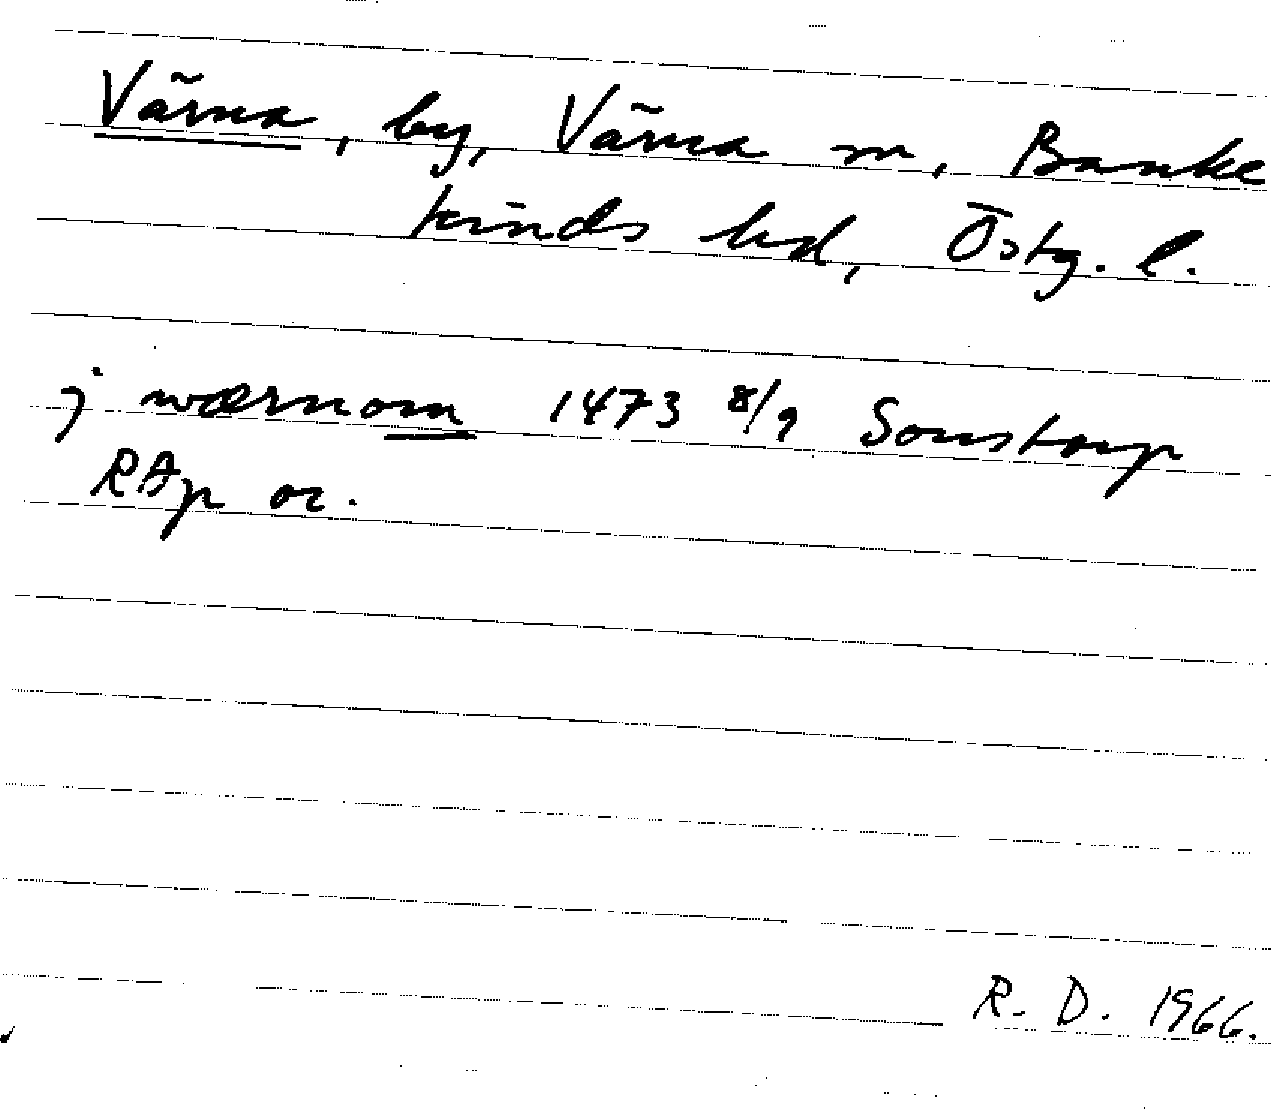 Värna, by, Värna sn, Banke
kinds hd, Östg. l.
j wærnom 1473 8/9 Sonstorp
RAp or.
R. D. 1966.